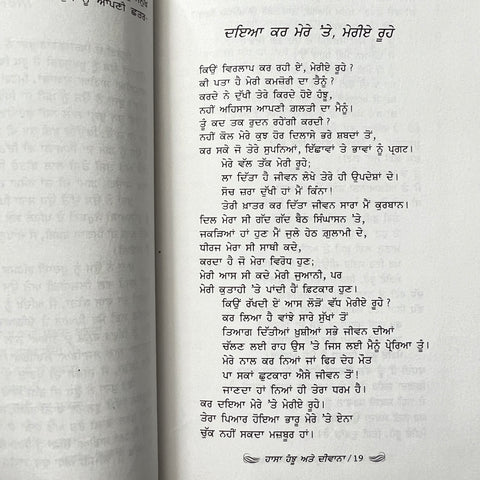 ਨੂੰ ਆਪਣੀ ਛਤਰ-
ਦਇਆ ਕਰ ਮੇਰੇ 'ਤੇ, ਮੇਰੀਏ ਰੂਹੇ
ਕਿਉਂ ਵਿਰਲਾਪ ਕਰ ਰਹੀ ਏਂ, ਮੇਰੀਏ ਰੂਹੇ ?
ਕੀ ਪਤਾ ਹੈ ਮੇਰੀ ਕਮਜ਼ੋਰੀ ਦਾ ਤੈਨੂੰ ?
ਕਰਦੇ ਨੇ ਦੁੱਖੀ ਤੇਰੇ ਕਿਰਦੇ ਹੋਏ ਹੰਝੂ,
ਨਹੀਂ ਅਹਿਸਾਸ ਆਪਣੀ ਗ਼ਲਤੀ ਦਾ ਮੈਨੂੰ।
ਤੂੰ ਕਦ ਤਕ ਰੁਦਨ ਰਹੇਂਗੀ ਕਰਦੀ ?
ਨਹੀਂ ਕੋਲ ਮੇਰੇ ਕੁਝ ਹੋਰ ਦਿਲਾਸੇ ਭਰੇ ਸ਼ਬਦਾਂ ਤੋਂ,
ਕਰ ਸਕੇ ਜੋ ਤੇਰੇ ਸੁਪਨਿਆਂ, ਇੱਛਾਵਾਂ ਤੇ ਭਾਵਾਂ ਨੂੰ ਪ੍ਰਗਟ।
ਮੇਰੇ ਵੱਲ ਤੱਕ ਮੇਰੀ ਰੂਹੇ;
ਲਾ ਦਿੱਤਾ ਹੈ ਜੀਵਨ ਲੇਖੇ ਤੇਰੇ ਹੀ ਉਪਦੇਸ਼ਾਂ ਦੇ।
ਸੋਚ ਜ਼ਰਾ ਦੁੱਖੀ ਹਾਂ ਮੈਂ ਕਿੰਨਾ !
ਤੇਰੀ ਖ਼ਾਤਰ ਕਰ ਦਿੱਤਾ ਜੀਵਨ ਸਾਰਾ ਮੈਂ ਕੁਰਬਾਨ।
ਦਿਲ ਮੇਰਾ ਸੀ ਗੱਦ ਗੱਦ ਬੈਠ ਸਿੰਘਾਸਨ 'ਤੇ,
ਜਕੜਿਆਂ ਹਾਂ ਹੁਣ ਮੈਂ ਜੂਲੇ ਹੇਠ ਗ਼ੁਲਾਮੀ ਦੇ,
ਧੀਰਜ ਮੇਰਾ ਸੀ ਸਾਥੀ ਕਦੇ,
ਕਰਦਾ ਹੈ ਜੋ ਮੇਰਾ ਵਿਰੋਧ ਹੁਣ;
ਮੇਰੀ ਆਸ ਸੀ ਕਦੇ ਮੇਰੀ ਜੁਆਨੀ, ਪਰ
ਮੇਰੀ ਕੁਤਾਹੀ 'ਤੇ ਪਾਂਦੀ ਹੈਂ ਫਿਟਕਾਰ ਹੁਣ।
ਕਿਉਂ ਰੱਖਦੀ ਏਂ ਆਸ ਲੋੜੋਂ ਵੱਧ ਮੇਰੀਏ ਰੂਹੇ ?
ਕਰ ਲਿਆ ਹੈ ਵਾਂਝੇ ਸਾਰੇ ਸੁੱਖਾਂ ਤੋਂ
ਤਿਆਗ ਦਿੱਤੀਆਂ ਖ਼ੁਸ਼ੀਆਂ ਸਭੇ ਜੀਵਨ ਦੀਆਂ
ਚੱਲਣ ਲਈ ਰਾਹ ਉਸ 'ਤੇ ਜਿਸ ਲਈ ਮੈਨੂੰ ਪ੍ਰੇਰਿਆ ਤੂੰ।
ਮੇਰੇ ਨਾਲ ਕਰ ਨਿਆਂ ਜਾਂ ਫਿਰ ਦੇਹ ਮੌਤ
ਪਾ ਸਕਾਂ ਛੁਟਕਾਰਾ ਐਸੇ ਜੀਵਨ ਤੋਂ !
ਜਾਣਦਾ ਹਾਂ ਨਿਆਂ ਹੀ ਤੇਰਾ ਧਰਮ ਹੈ।
ਕਰ ਦਇਆ ਮੇਰੇ 'ਤੇ ਮੇਰੀਏ ਰੂਹੇ।
ਤੇਰਾ ਪਿਆਰ ਹੋਇਆ ਭਾਰੂ ਮੇਰੇ 'ਤੇ ਏਨਾ
ਚੁੱਕ ਨਹੀਂ ਸਕਦਾ ਮਜ਼ਬੂਰ ਹਾਂ।
ਹਾਸਾ ਹੰਝੂ ਅਤੇ ਦੀਵਾਨਾ/19